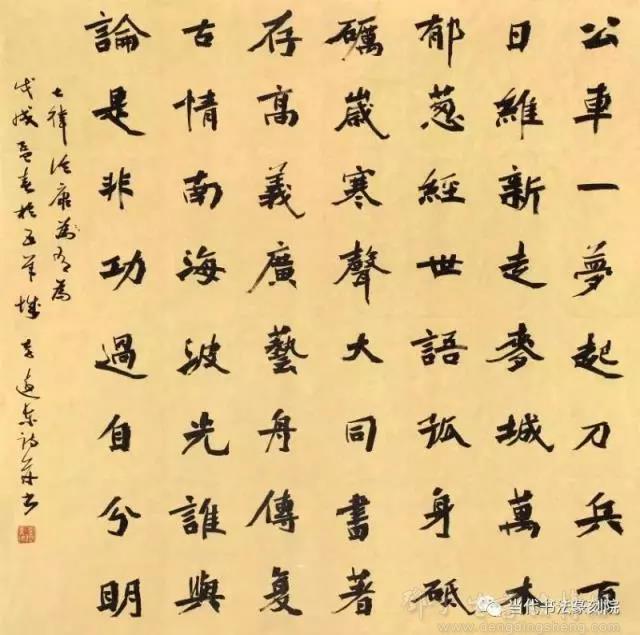 公車一夢起刀兵百
日維新走麥城萬木
郁葱經世語孤身砥
礪歲寒聲大同書著
存高義廣藝舟傳復
古情南海波光誰與
論是非功過自分明
七律詠康
戊戌孟春於五羊城 李遠東詩并書
当代书法篆刻院
www.dengdingsheng.com